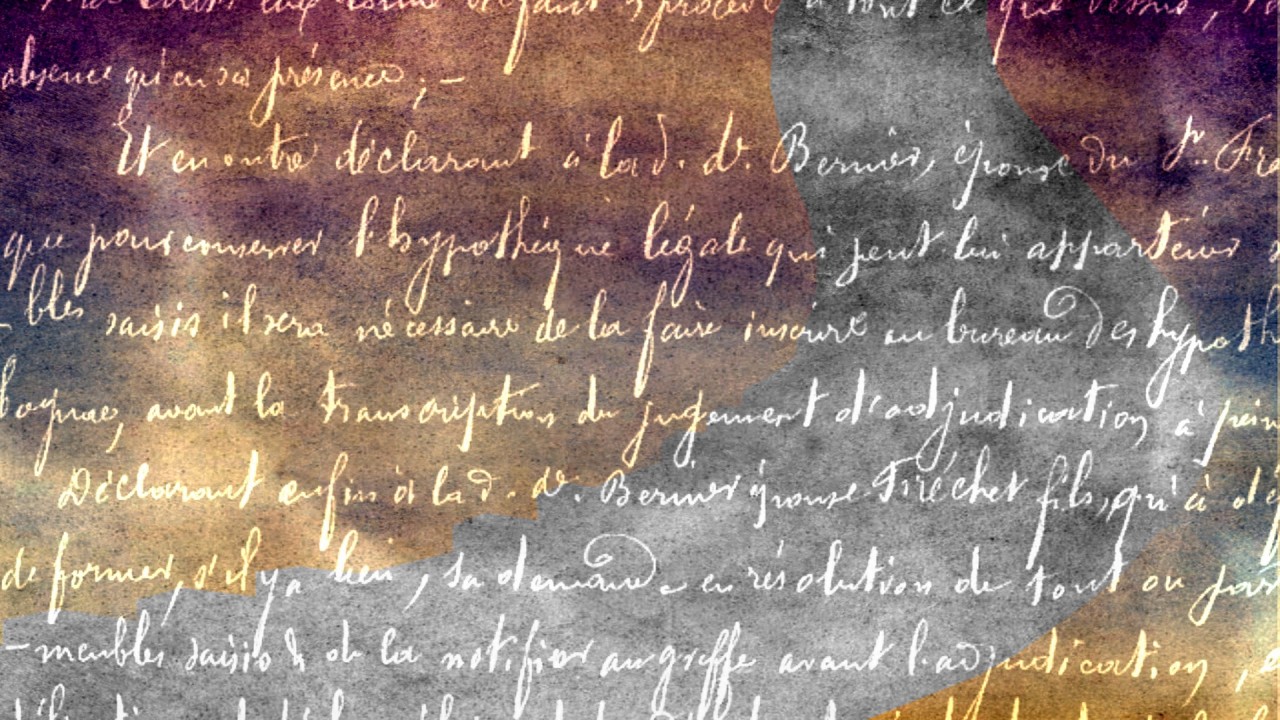 absence qu'en sa présence ; —
Et en outre déclarant à la d. de. Bernier, épouse du Sr. Fré
que pour conserver l'hypothèque légale qui peut lui appartenir s
-bles saisis il sera nécessaire de la faire inscrire au bureau des hypoth
avant la transcription du jugement d'adjudication à pein
Déclarant enfin à la d. de. Bernier épouse Fréchet fils, qu'à dé
de former, s'il y a lieu, sa demande en résolution de tout ou par
-meubles saisis & de la notifier au greffe avant l'adjudication,